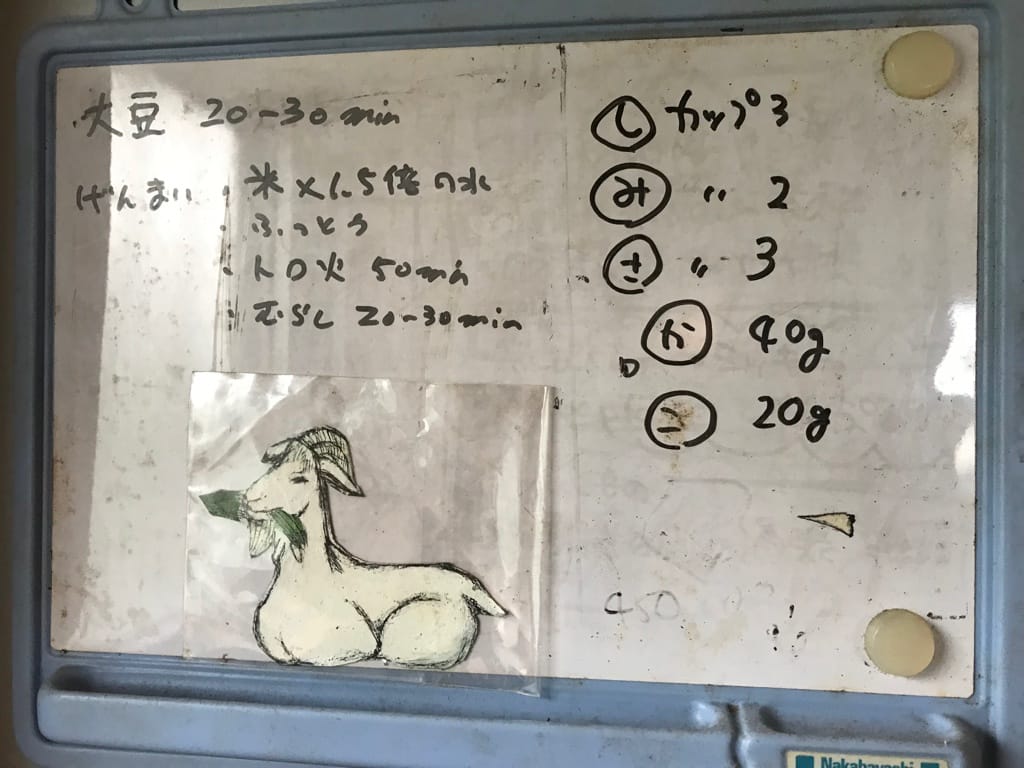 大豆 20-30min
げんまい ・米×1.5倍の水
・ふっとう
・トロ火 50min
・むらし 20-30min
し カップ3
み 〃 2
さ 〃 3
か 40g
ニ 20g
450
Nakabayashi